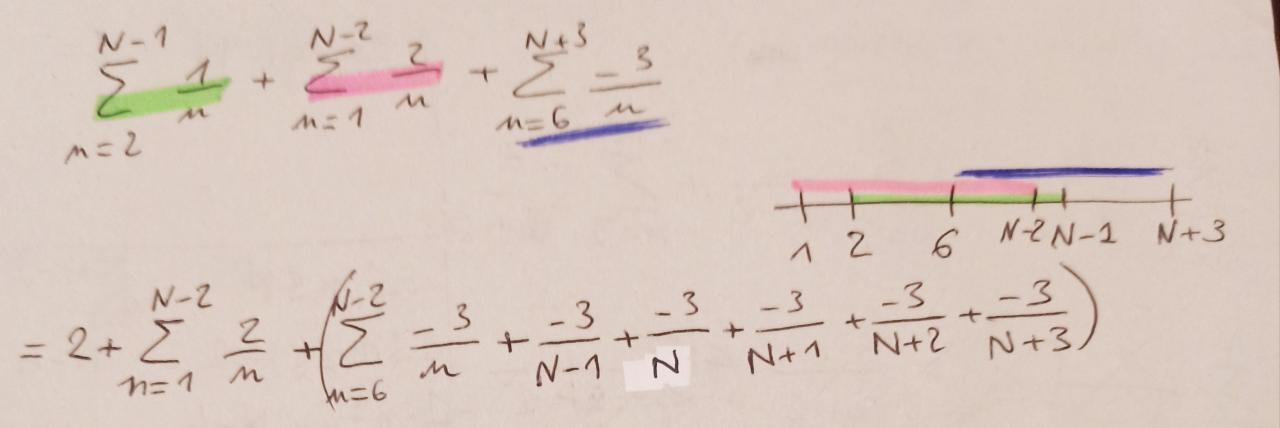 \sum_{n=2}^{N-1} \frac{1}{n} + \sum_{n=1}^{N-2} \frac{2}{n} + \sum_{n=6}^{N+3} \frac{-3}{n}
1 2 6 N-2 N-1 N+3
= 2 + \sum_{n=1}^{N-2} \frac{2}{n} + \left( \sum_{n=6}^{N-2} \frac{-3}{n} + \frac{-3}{N-1} + \frac{-3}{N} + \frac{-3}{N+1} + \frac{-3}{N+2} + \frac{-3}{N+3} \right)